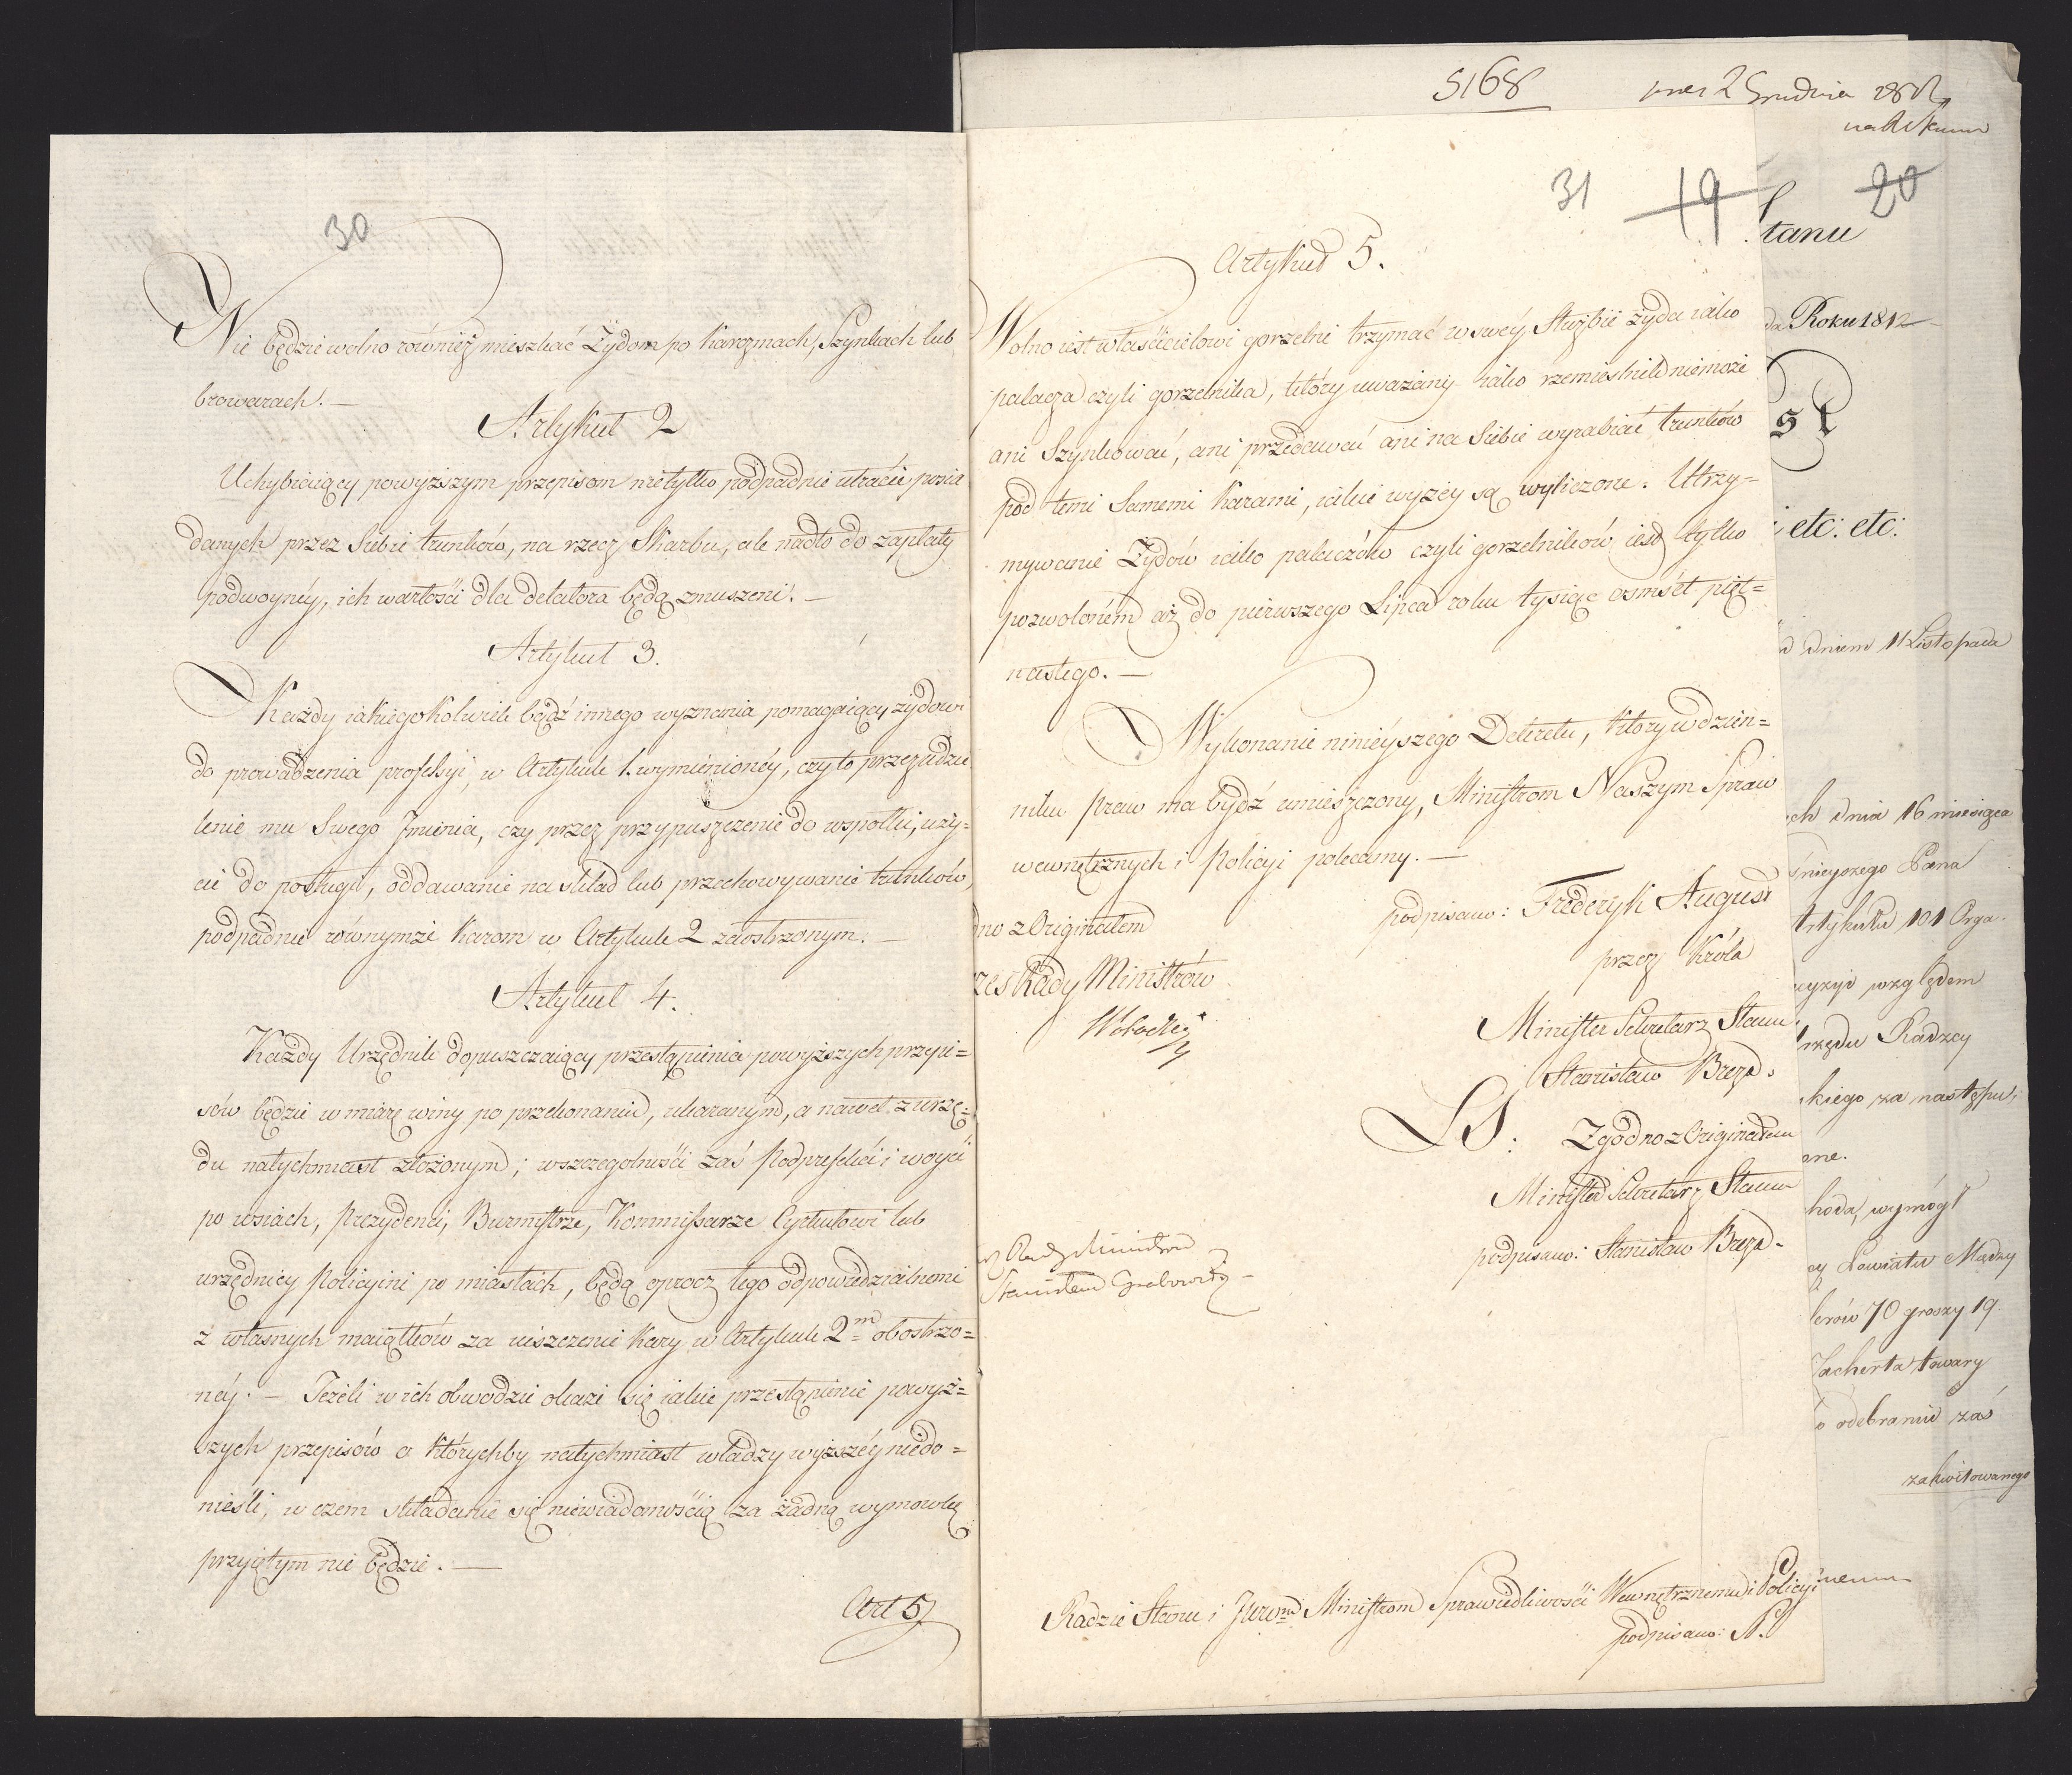 30
Nie będzie wolno również mieszkać Żydom po Karczmach, Szynkach lub
browarach. —
Artykuł 2
Uchybiaiący powyższym przepisom nietylko podpadnie utracie posia
danych przez Siebie trunków, na rzecz Skarbu, ale nadto do zapłaty
podwoyney, ich wartości dla delatora będą zmuszeni. —
Artykuł 3.
Każdy iakiegokolwiek bądź innego wyznania pomagaiący żydowi
do prowadzenia professyi, w Artykule 1. wymienionéy, czy to przez udzie
lenie mu Swego Imienia, czy przez przypuszczenie do wspołki, uży-
cie do posługi, oddawanie na skład lub przechowywanie trunków,
podpadnie równymże Karom w Artykule 2 zaostrzonym. —
Artykuł 4.
Każdy Urzędnik dopuszczaiący przestąpienia powyższych przepi=
sów będzie w miarę winy po przekonaniu, ukaranym, a nawet z urzę=
du natychmiast złożonym; wszczególności zaś Podprefekci i woyci
po wsiach, Prezydenci, Burmistrze, Kommissarze Cyrkułowi lub
urzędnicy Policyini po miastach, będą oprocz tego odpowiedzialnemi
z własnych maiątków za uiszczenie Kary w Artykule 2m obostrzo=
néj. — Jeżeli w ich obwodzie okaże się iakie przestąpienie powyż=
szych przepisów o którychby natychmiast władzy wyższéy niedo=
nieśli, w czem składanie się niewiadomością za żadną wymowkę
przyiętym nie będzie. —
Art 5
5168
2 Grudnia
31 19
Artykuł 5.
Wolno iest właścicielowi gorzelni trzymać w swéy Służbie żyda iako
palacza czyli gorzelnika, który uważany iako rzemieslnik niemoże
ani Szynkować, ani przedawać ani na Siebie wyrabiać trunków
pod temi Samemi Karami, iakie wyżéy są wyliczone. Utrzy=
mywanie Żydów iako palaczów czyli gorzelników iest tylko
pozwoloném aż do pierwszego Lipca roku tysiąc osmset pięt=
nastego. —
Wykonanie ninieyszego Dekretu, który w dzien=
niku praw ma bydź umieszczony, Ministrom Naszym Spraw
wewnętrznych i Policyi polecamy. —
podpisano: Frederyk August
przez Króla
Minister Sekretarz Stanu
Stanisław Breza.
LS. Zgodno z Originałem
Minister Sekretarz Stanu
podpisano: Stanisław Breza.
dno z Originałem
zes Rady Ministrów
Rady Ministrów
Stanisław Grabowski
Radzie Stanu i Ministrom Sprawiedliwości Wewnętrznemu i Policyi
podpisano:
20
Stanu
da Roku 1812
st
i etc: etc:
d dniem 11 Listopada
ch dnia 16 miesiąca
śnieyszego Pana
Artykułu 101 Orga-
cyzyi względem
Urzędu Radzcy
kiego za następu,
ane.
hoda, wymógł
Powiatu
lerów 70 groszy 19
Zacherta towary
o odebranie zaś
zakwitowanego